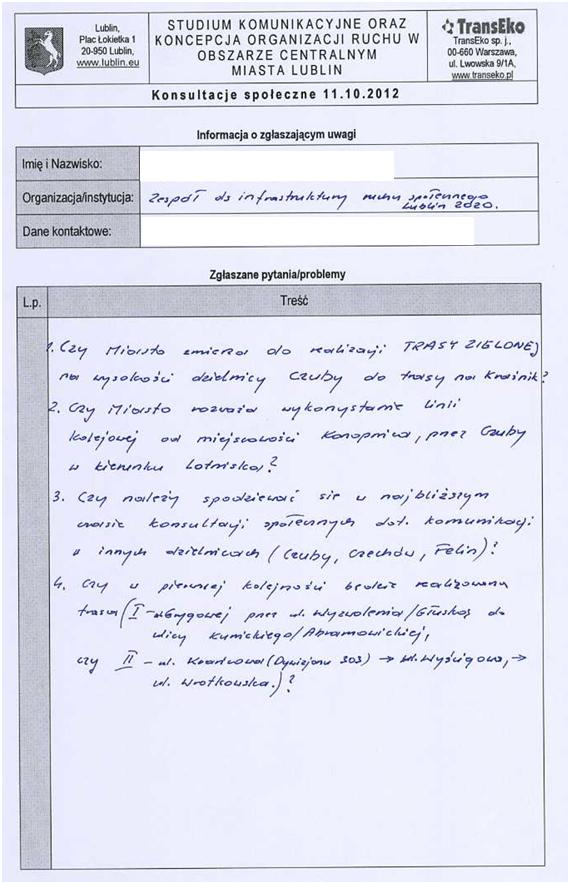 Lublin,
Plac Łokietka 1
20-950 Lublin,
www.lublin.eu
STUDIUM KOMUNIKACYJNE ORAZ
KONCEPCJA ORGANIZACJI RUCHU W
OBSZARZE CENTRALNYM
MIASTA LUBLIN
TransEko
TransEko sp. j.,
00-660 Warszawa,
ul. Lwowska 9/1A,
www.transeko.pl
Konsultacje społeczne 11.10.2012
Informacja o zgłaszającym uwagi
Imię i Nazwisko:
Organizacja/instytucja: Zespół ds infrastruktury ruchu społecznego
Lublin 2020.
Dane kontaktowe:
Zgłaszane pytania/problemy
L.p. Treść
1. Czy Miasto zmierza do realizacji TRASY ZIELONEJ
na wysokości dzielnicy Czuby do trasy na Kraśnik?
2. Czy Miasto rozważa wykorzystanie linii
kolejowej od miejscowości Konopnica, przez Czuby
w kierunku Lotniska?
3. Czy należy spodziewać się w najbliższym
czasie konsultacji społecznych dot. komunikacji
w innych dzielnicach (Czuby, Czechów, Felin)?
4. Czy w pierwszej kolejności będzie realizowana
trasa (I - ul. Grygowej przez ul. Wyzwolenia/Głuską do
ulicy Kunickiego/Abramowickiej,
czy II - ul. (Dywizjonu 303) → ul. Wyścigowa, →
ul. Wrotkowska.)?